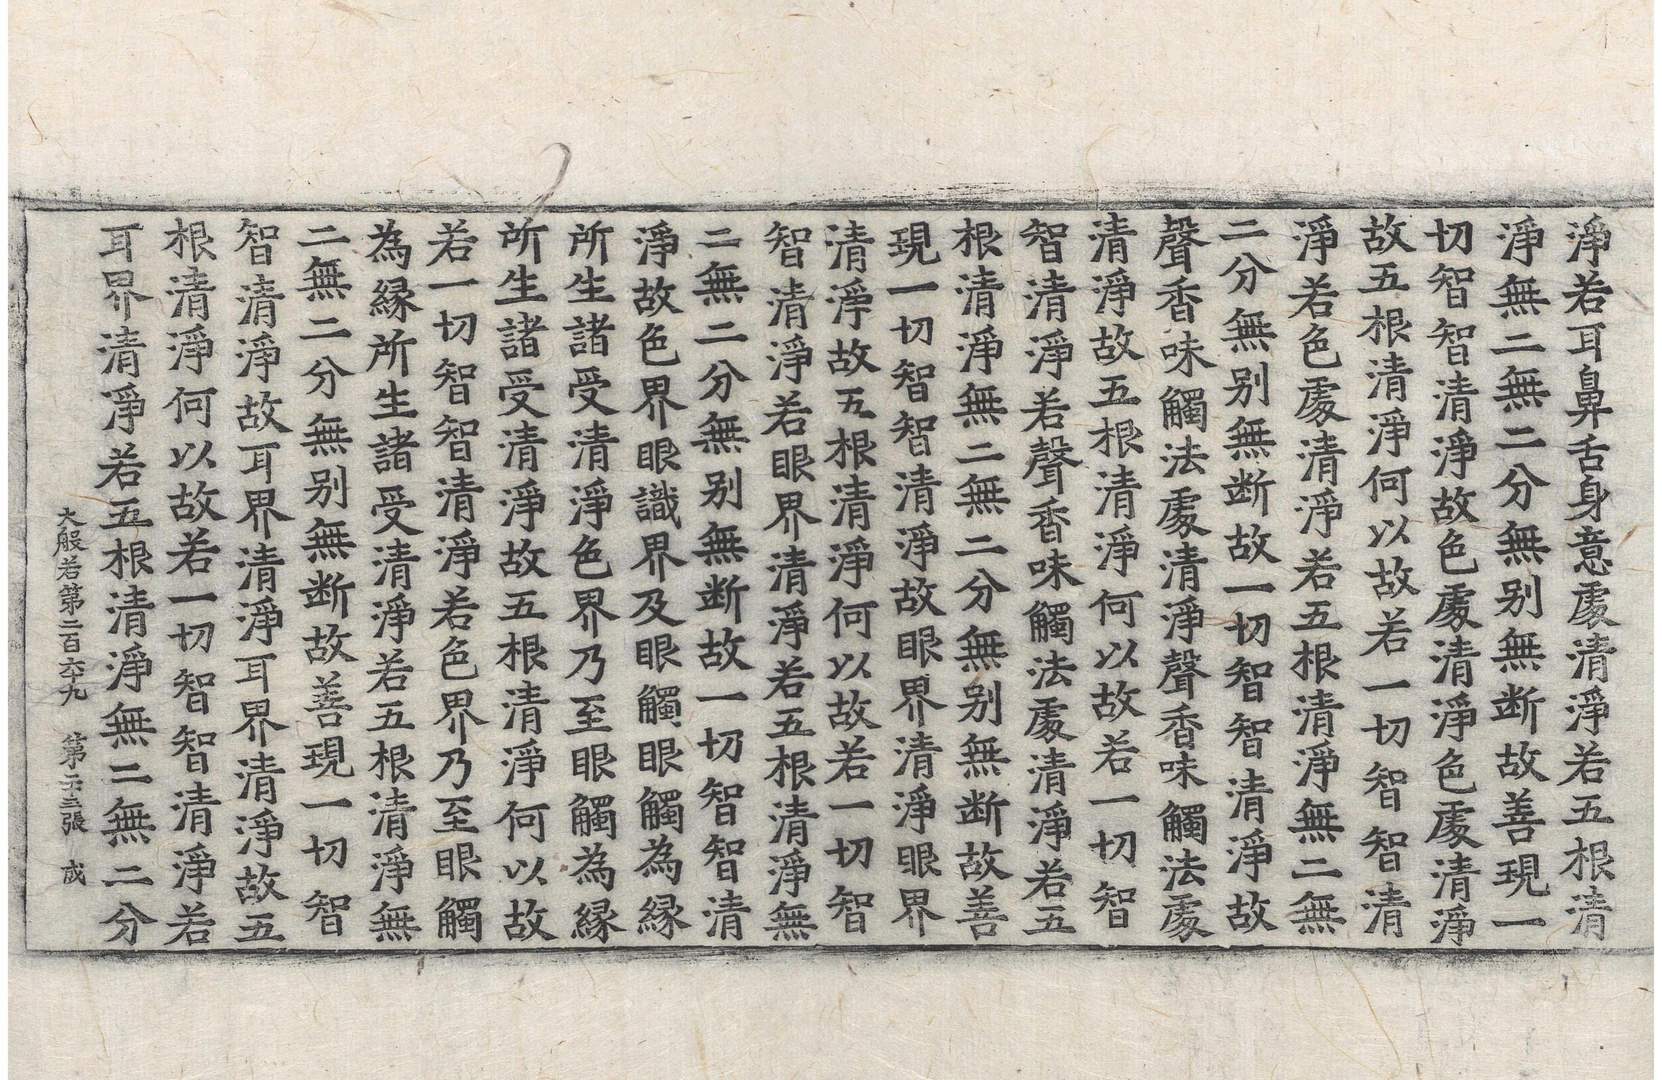 淨若耳鼻舌身意處清淨若五根清
淨無二無二分無别無断故善現一
切智智清淨故色處清淨色處清淨
故五根清淨何以故若一切智智清
淨若色處清淨若五根清淨無二無
二分無别無断故一切智智清淨故
聲香味觸法處清淨聲香味觸法處
清淨故五根清淨何以故若一切智
智清淨若聲香味觸法處清淨若五
根清淨無二無二分無别無断故善
現一切智智清淨故眼界清淨眼界
清淨故五根清淨何以故若一切智
智清淨若眼界清淨若五根清淨無
二無二分無别無断故一切智智清
淨故色界眼識界及眼觸眼觸為緣
所生諸受清淨色界乃至眼觸為緣
所生諸受清淨故五根清淨何以故
若一切智智清淨若色界乃至眼觸
為緣所生諸受清淨若五根清淨無
二無二分無别無断故善現一切智
智清淨故耳界清淨耳界清淨故五
根清淨何以故若一切智智清淨若
耳界清淨若五根清淨無二無二分
大般若第二百六十九 第二十三張 成